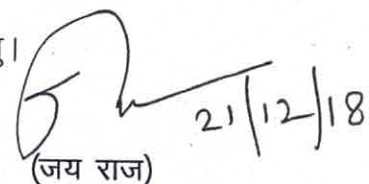 21/12/18
(जय राज)